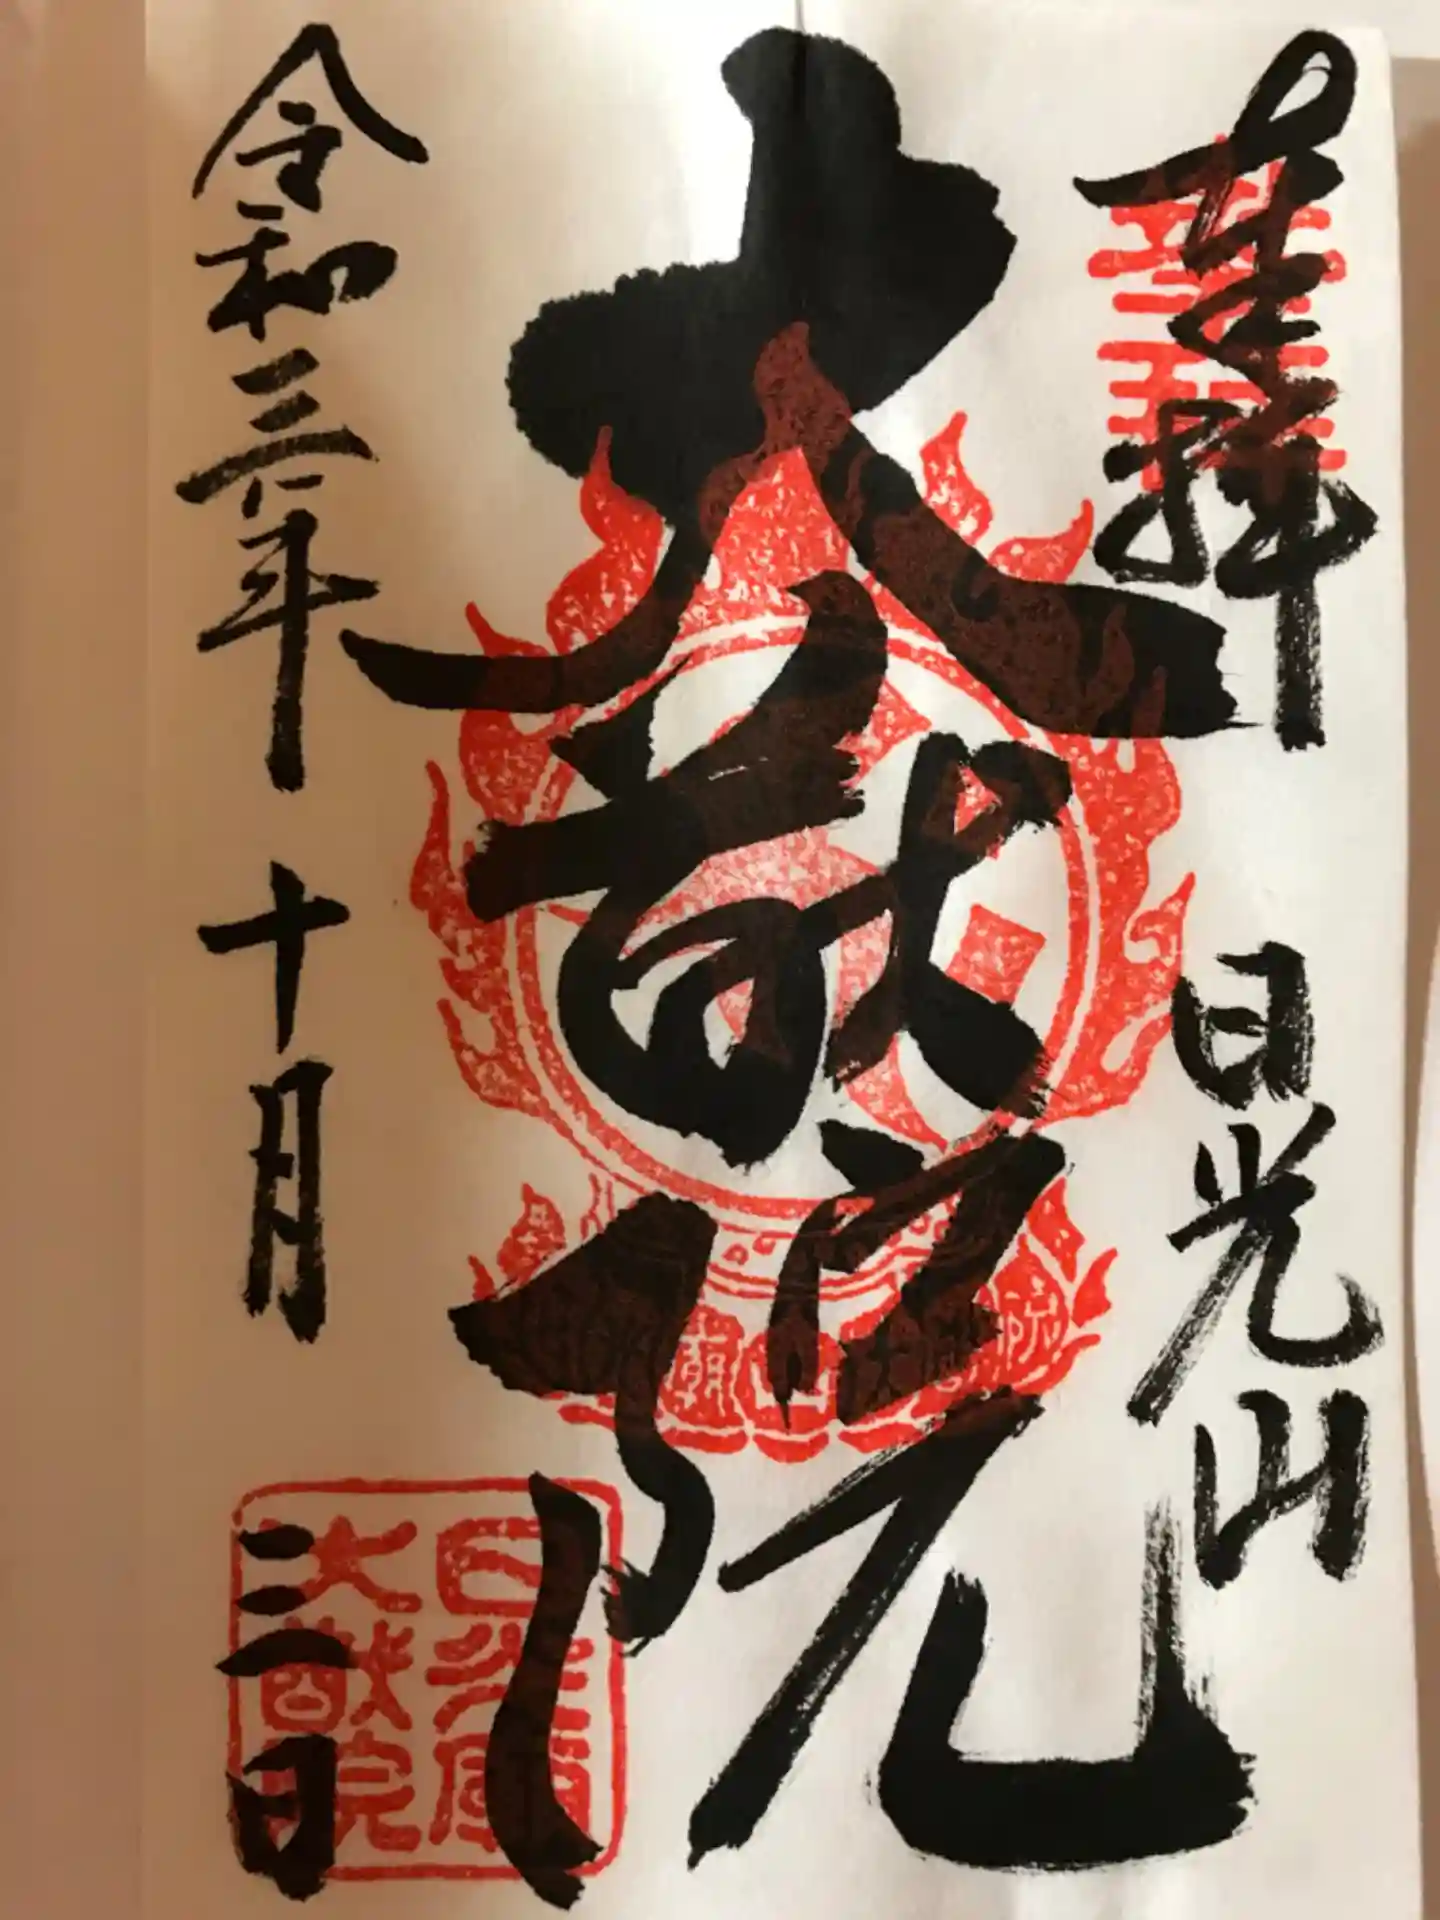 奉拝 日光山
大猷院
令和三年十月三日
日光廟
大猷院